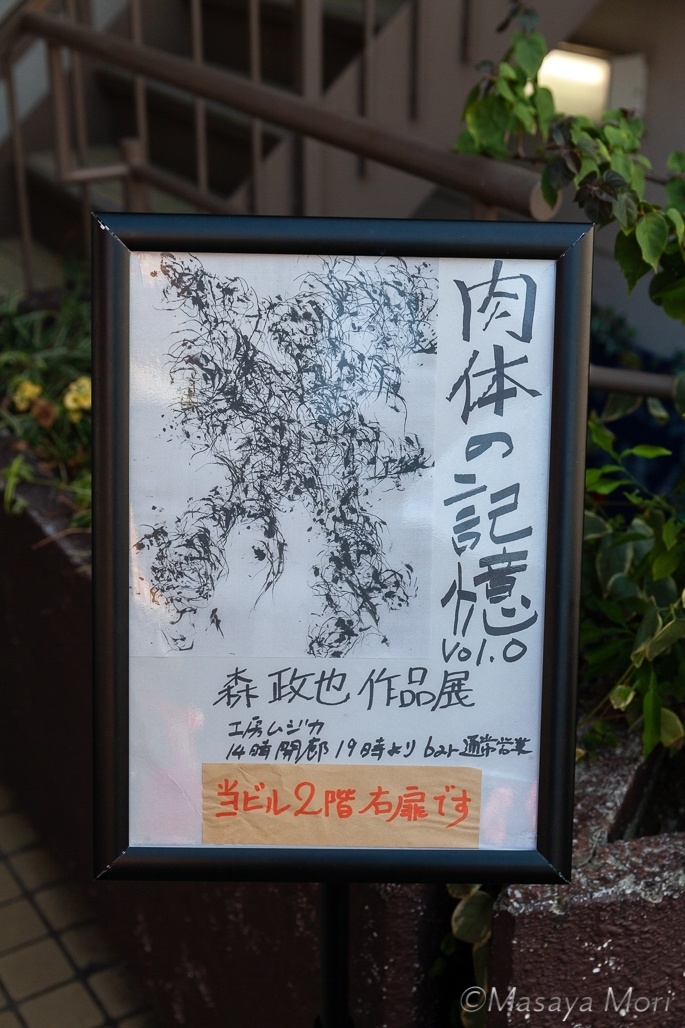 肉体の記憶
vol.0
森政也 作品展
工房ムジカ
14時開廊 19時より bar通常営業
当ビル2階右扉です
©Masaya Mori